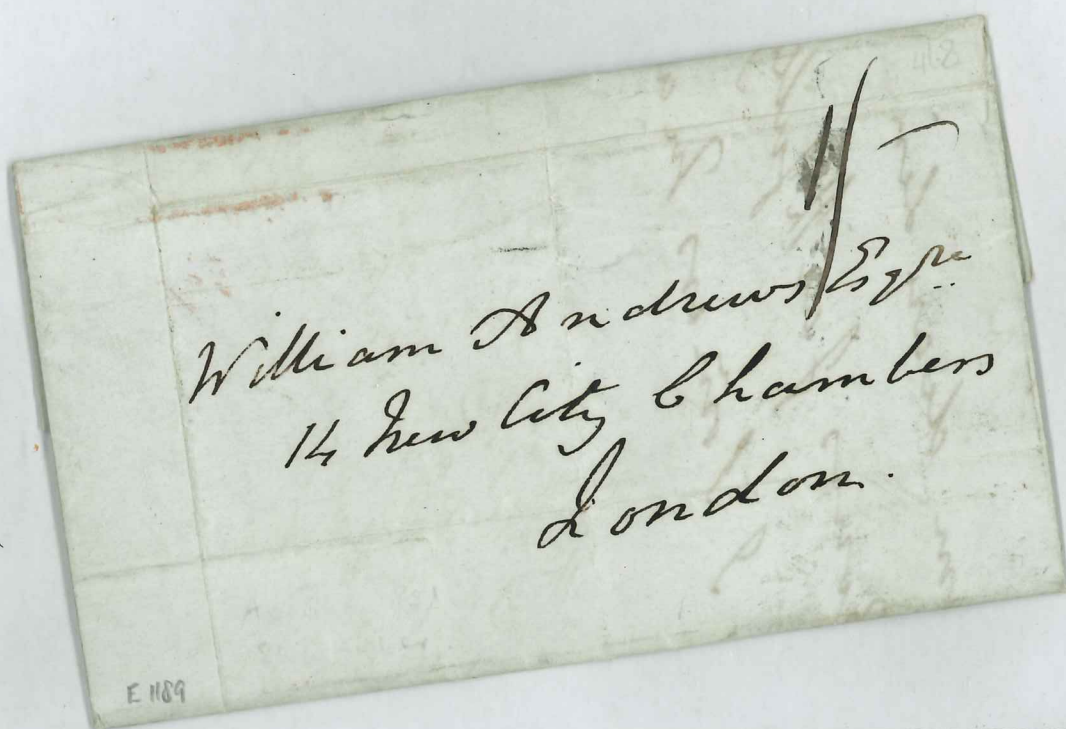 1/-
William Andrews Esqre
14 New City Chambers
London.
E 1189